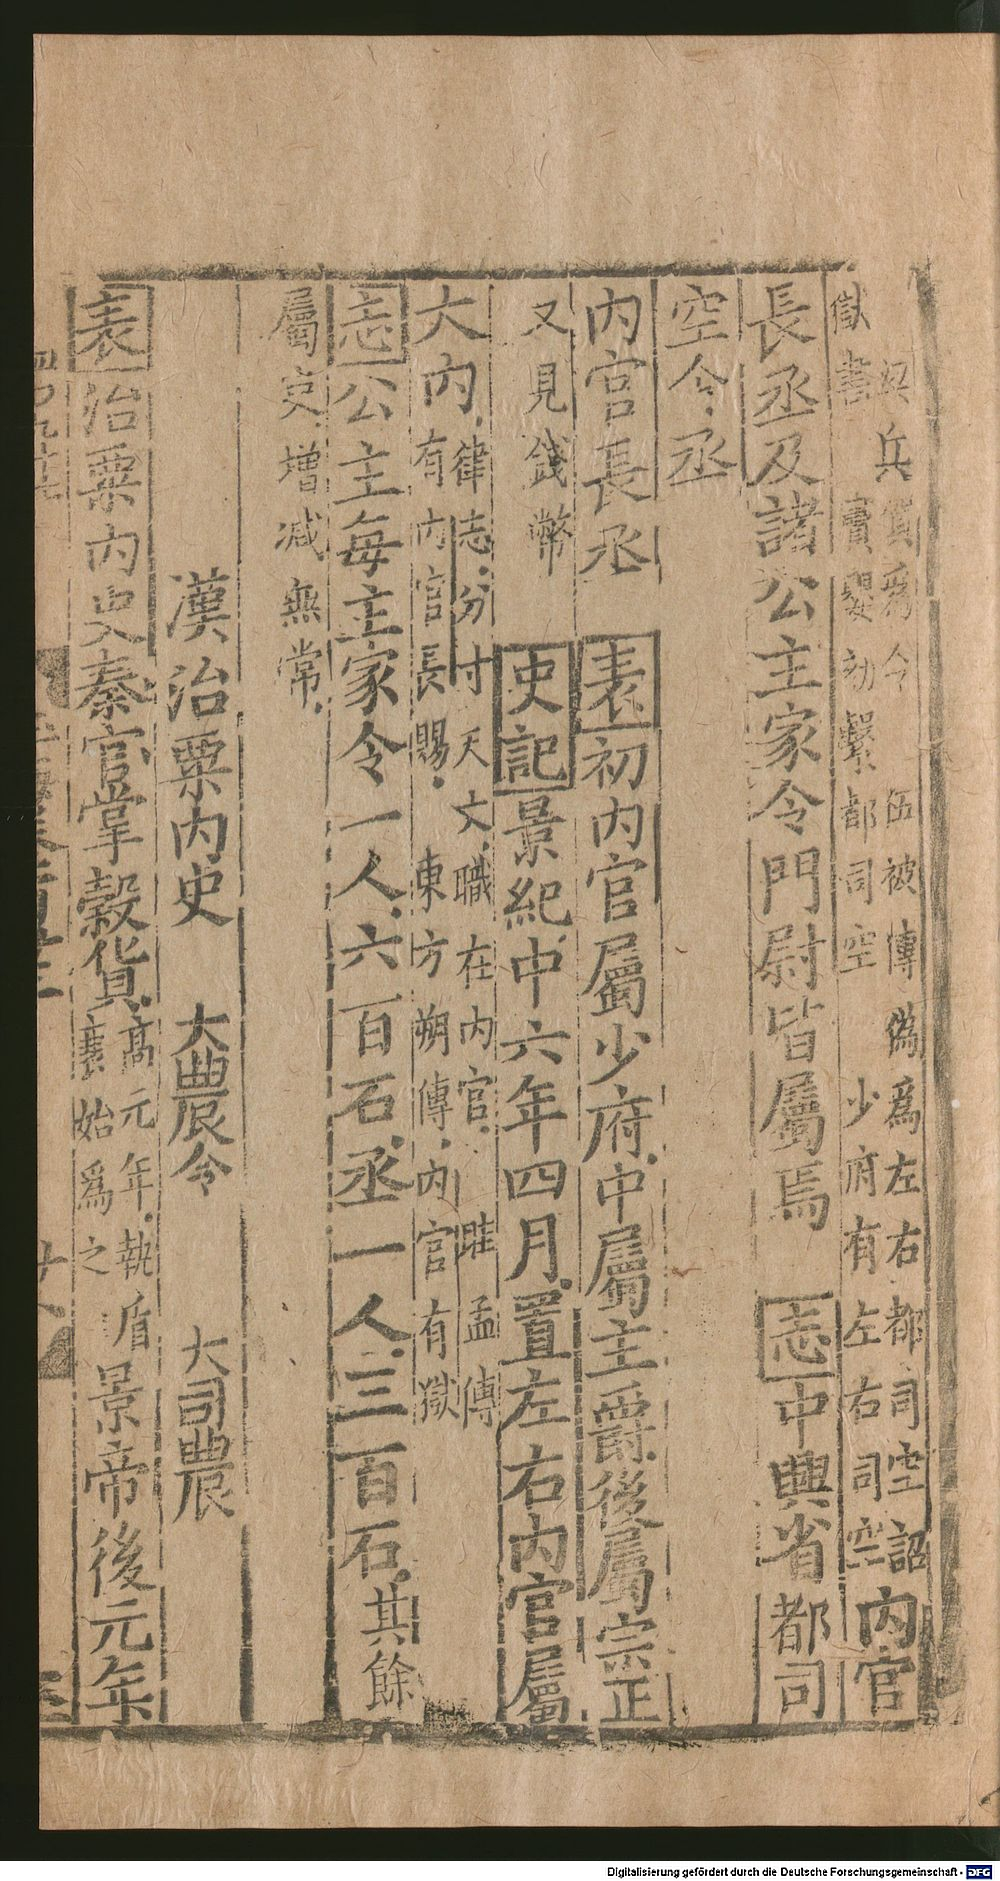 兵質爲令 伍被傳僞爲左右都司空詔
獄書 竇嬰劾繫都司空 少府有左右司空 内官
長丞及諸公主家令門尉皆屬焉 志中興省都司
空令丞
内官長丞 表初内官屬少府中屬主爵後屬宗正
又見錢幣 史記景紀中六年四月置左右内官屬
大内 律志分寸天文職在内官 眭孟傳
有内官長賜 東方朔傳内官有獄
志公主每主家令一人六百石丞一人三百石其餘
屬吏增減無常
漢治粟内史 大農令 大司農
表治粟内史秦官掌穀貨 高元年執盾
襄始爲之 景帝後元年
Digitalisierung gefördert durch die Deutsche Forschungsgemeinschaft - DFG